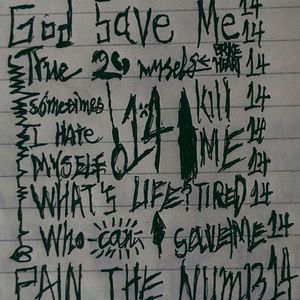 God Save Me 14
True 2 myself BROKE HEART 14
sometimes 14 Kill 14
I Hate ME 14
MYSELF 14
WHAT'S LIFE? TIRED 14
Who can SAVE ME 14
PAIN THE NUMB 14